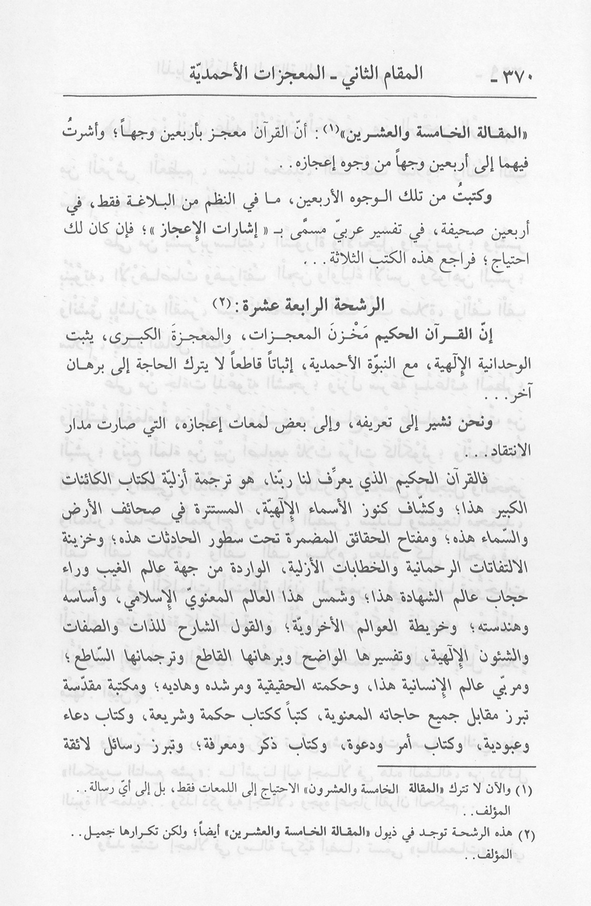 ٣٧٠ ـ المقام الثاني ـ المعجزات الأحمديّة
«المقـالة الخـامسـة والعشـريـن»(١) : أنّ القرآن معجـز بـأربعين وجهـاً؛ وأشرتُ
فيهما إلى أربعين وجهاً من وجوه إعجازه. .
وكتبتُ من تلك الـوجوه الأربعين، مـا في النظم من البـلاغـة فقط، في
أربعين صحيفة، في تفسير عربيّ مسمًى بـ « إشارات الإعجاز »؛ فإن كان لك
احتياج ؛ فراجع هذه الكتب الثلاثة. . .
الرشحة الرابعة عشرة: (٢)
إنّ القـرآن الحكيم مَخْـزنَ المعجـزات، والمعجـزةَ الكبـرى، يثبت
الوحدانية الإلٓهية، مع النبوّة الأحمدية، إثباتاً قاطعاً لا يترك الحاجة إلى برهـان
آخر. . .
ونحن نشير إلى تعريفه، وإلى بعض لمعات إعجازه، التي صارت مدار
الانتقاد. . .
فالقرآن الحكيم الذي يعرِّف لنا ربّنا، هو ترجمة أزليّة لكتاب الكائنات
الكبير هذا؛ وكشّاف كنوز الأسماء الإلٓهيّة، المستترة في صحائف الأرض
والسّماء هذه؛ ومفتاح الحقائق المضمرة تحت سطور الحادثات هذه؛ وخزينة
الالتفاتات الرحمانية والخطابات الأزلية، الواردة من جهة عالم الغيب وراء
حجاب عالم الشهادة هذا؛ وشمس هذا العالم المعنويّ الإسلامي، وأساسه
وهندسته؛ وخريطة العوالم الأخرويّة؛ والقول الشارح للذات والصفات
والشئون الإلٓهية، وتفسيرها الواضح وبرهانها القاطع وترجمانها السّاطع؛
ومربّي عالم الإنسانية هذا، وحكمته الحقيقية ومرشده وهاديه؛ ومكتبة مقدّسة
تبرز مقابل جميع حاجاته المعنوية، كتباً ككتاب حكمة وشريعة، وكتاب دعاء
وعبودية، وكتاب أمر ودعوة، وكتاب ذكر ومعرفة؛ وتبرز رسائل لائقة
(١) والآن لا تترك «المقالة الخامسة والعشرون» الاحتياج إلى اللمعات فقط، بل إلى أيّ رسالة. .
المؤلف. .
(٢) هذه الرشحة توجد في ذيول «المقالة الخامسة والعشرين» أيضاً؛ ولكن تكرارها جميل. .
المؤلف. .